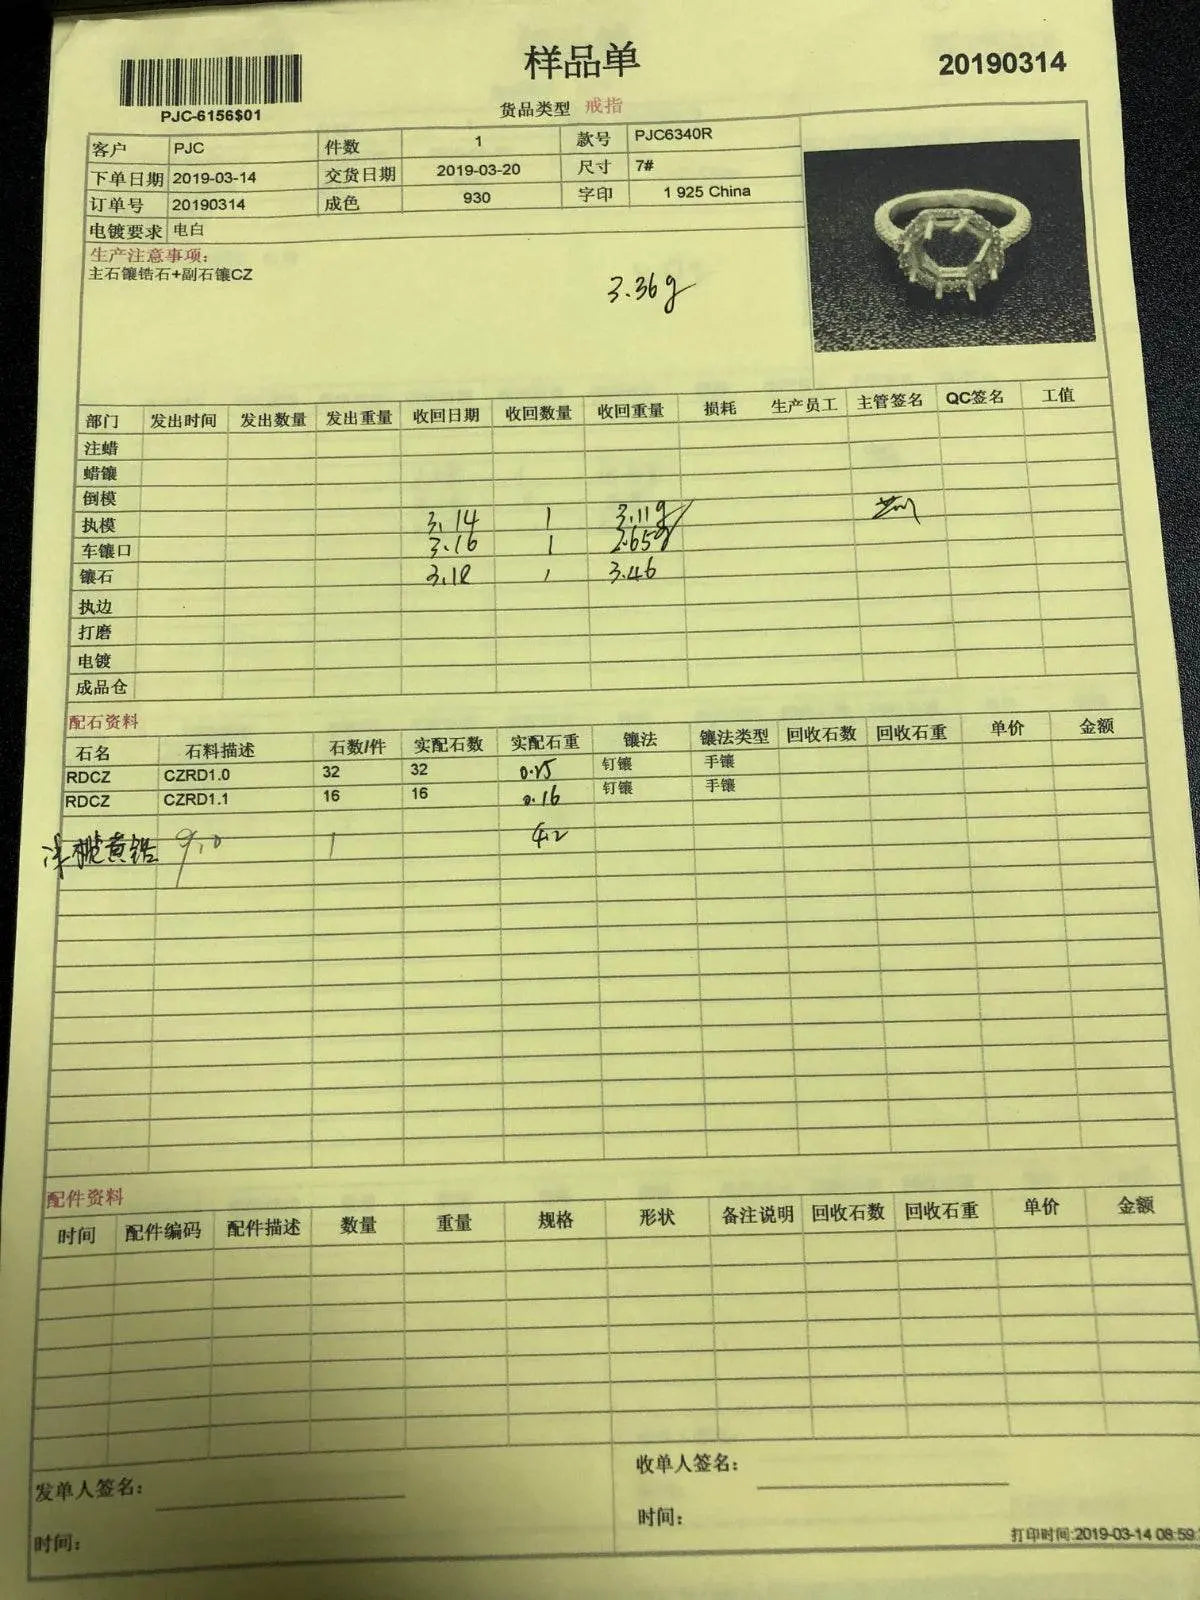 样品单
20190314
PJC-6156$01
货品类型 戒指
客户 PJC 件数 1 款号 PJC6340R
下单日期 2019-03-14 交货日期 2019-03-20 尺寸 7#
订单号 20190314 成色 930 字印 1 925 China
电镀要求 电白
生产注意事项:
主石镶锆石+副石镶CZ
3.36g
部门 发出时间 发出数量 发出重量 收回日期 收回数量 收回重量 损耗 生产员工 主管签名 QC签名 工值
注蜡
蜡镶
倒模
执模 3.14 1 3.11g
车镶口 3.16 1 2.65g
镶石 3.18 1 3.46
执边
打磨
电镀
成品仓
配石资料
石名 石料描述 石数/件 实配石数 实配石重 镶法 镶法类型 回收石数 回收石重 单价 金额
RDCZ CZRD1.0 32 32 0.25 钉镶 手镶
RDCZ CZRD1.1 16 16 0.16 钉镶 手镶
黄锆 9.0 1 4.2
配件资料
时间 配件编码 配件描述 数量 重量 规格 形状 备注说明 回收石数 回收石重 单价 金额
发单人签名:
收单人签名:
时间:
时间:
打印时间:2019-03-14 08:59: